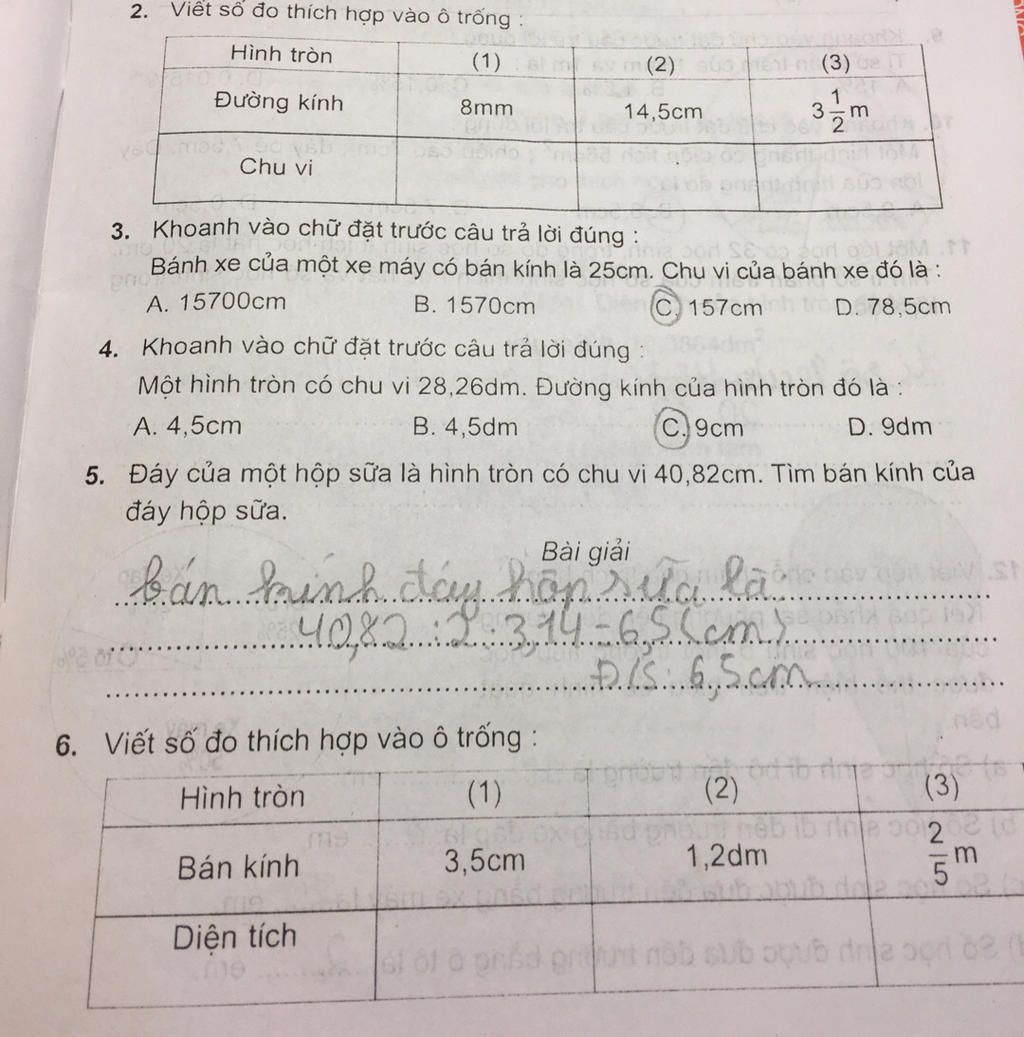 2. Viết số đo thích hợp vào ô trống :
Hình tròn (1) (2) (3)
Đường kính 8mm 14,5cm 3 1/2 m
Chu vi
3. Khoanh vào chữ đặt trước câu trả lời đúng :
Bánh xe của một xe máy có bán kính là 25cm. Chu vi của bánh xe đó là :
A. 15700cm B. 1570cm C. 157cm D. 78,5cm
4. Khoanh vào chữ đặt trước câu trả lời đúng :
Một hình tròn có chu vi 28,26dm. Đường kính của hình tròn đó là :
A. 4,5cm B. 4,5dm C. 9cm D. 9dm
5. Đáy của một hộp sữa là hình tròn có chu vi 40,82cm. Tìm bán kính của
đáy hộp sữa.
Bài giải
bán kính đáy hộp sữa là
40,82 : 2 : 3,14 = 6,5 (cm)
Đ/S: 6,5cm
6. Viết số đo thích hợp vào ô trống :
Hình tròn (1) (2) (3)
Bán kính 3,5cm 1,2dm 2/5 m
Diện tích